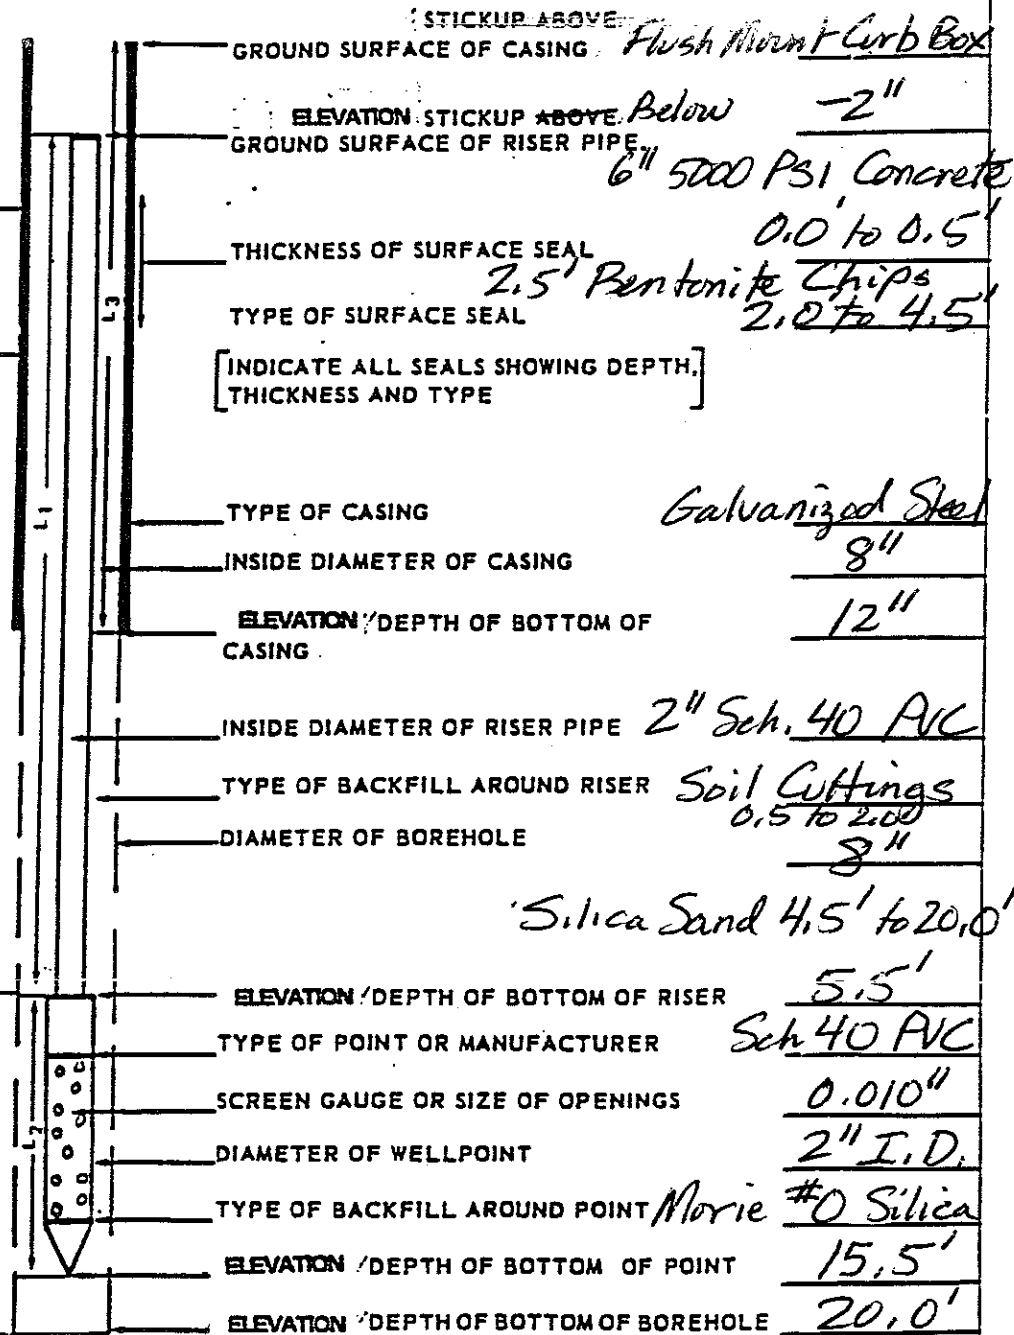 STICKUP ABOVE
GROUND SURFACE OF CASING Flush Mount Curb Box
ELEVATION STICKUP ABOVE Below -2"
GROUND SURFACE OF RISER PIPE
6" 5000 PSI Concrete
0.0' to 0.5'
THICKNESS OF SURFACE SEAL
2.5' Bentonite Chips
TYPE OF SURFACE SEAL 2.0 to 4.5'
[INDICATE ALL SEALS SHOWING DEPTH,
THICKNESS AND TYPE]
L3
L1
TYPE OF CASING Galvanized Steel
INSIDE DIAMETER OF CASING 8"
ELEVATION / DEPTH OF BOTTOM OF 12"
CASING
INSIDE DIAMETER OF RISER PIPE 2" Sch. 40 PVC
TYPE OF BACKFILL AROUND RISER Soil Cuttings
0.5 to 2.00
DIAMETER OF BOREHOLE 8"
Silica Sand 4.5' to 20.0'
ELEVATION / DEPTH OF BOTTOM OF RISER 5.5'
TYPE OF POINT OR MANUFACTURER Sch 40 PVC
SCREEN GAUGE OR SIZE OF OPENINGS 0.010"
L2
DIAMETER OF WELLPOINT 2" I.D.
TYPE OF BACKFILL AROUND POINT Morie #0 Silica
ELEVATION / DEPTH OF BOTTOM OF POINT 15.5'
ELEVATION / DEPTH OF BOTTOM OF BOREHOLE 20.0'